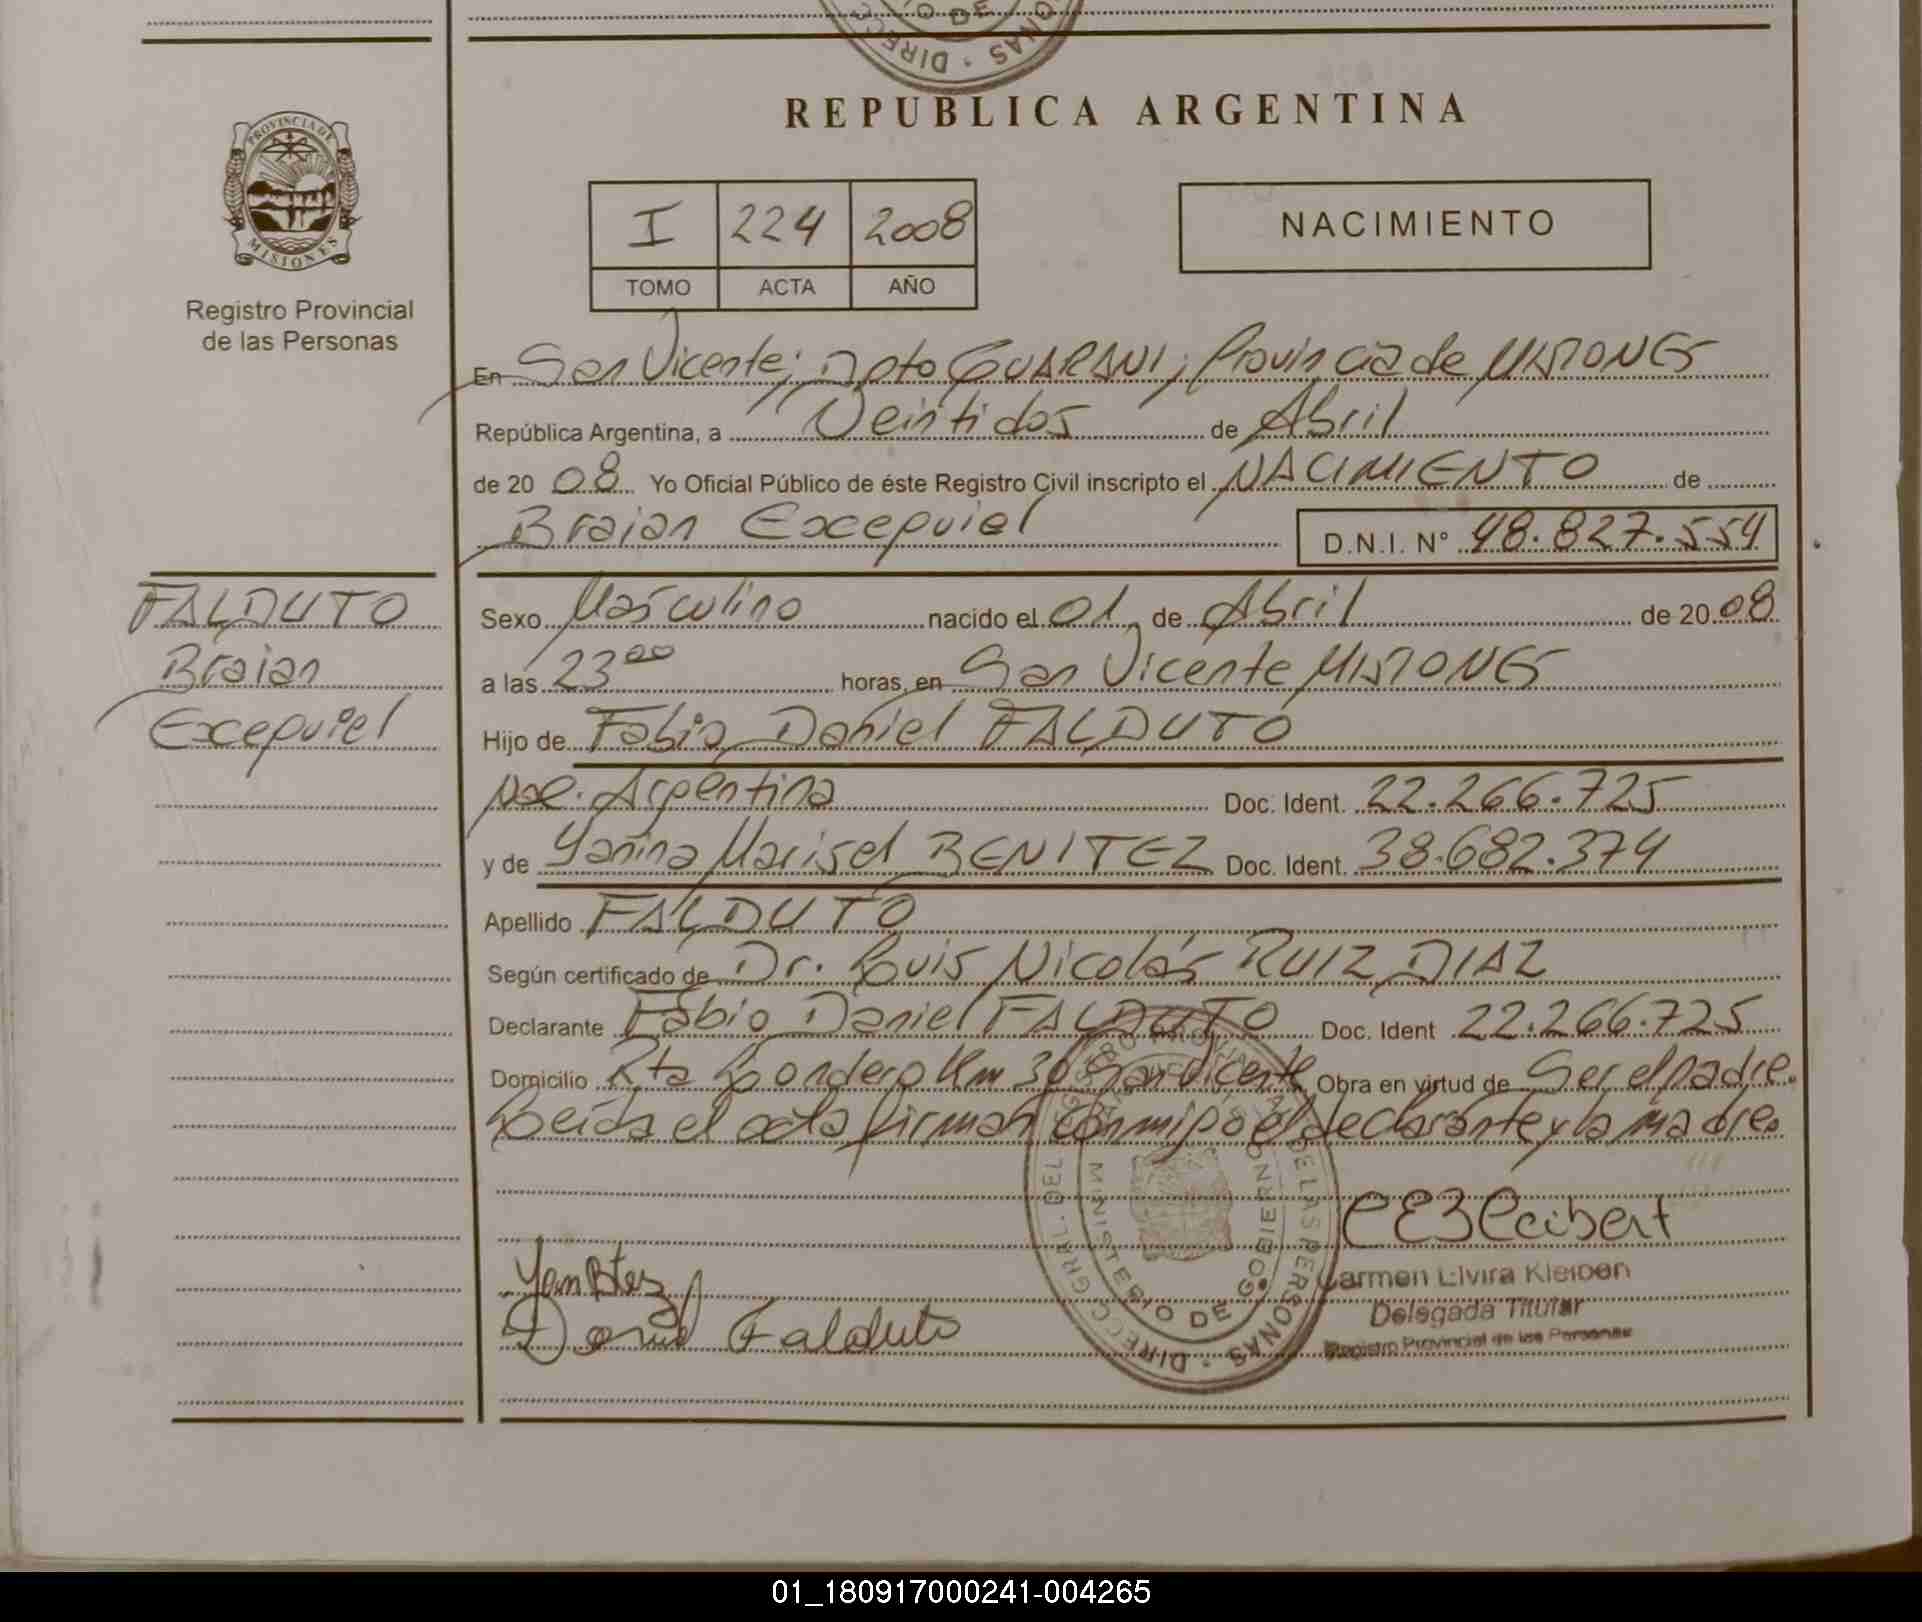 O DE
DIREC
NAS
REPUBLICA ARGENTINA
PROVINCIA DE
MISIONES
Registro Provincial
de las Personas
I 224 2008
TOMO ACTA AÑO
NACIMIENTO
En San Vicente; Dpto GUARANI, Provincia de MISIONES
República Argentina, a Veintidos de Abril
de 20 08 Yo Oficial Público de éste Registro Civil inscripto el NACIMIENTO de
Braian Excequiel D.N.I. N° 48.827.554
FALDUTO
Braian
Excequiel
Sexo Masculino nacido el 01 de Abril de 20 08
a las 23 00 horas, en San Vicente MISIONES
Hijo de Fabio Daniel FALDUTO
Nac. Argentina Doc. Ident. 22.266.725
y de Yanina Marisel BENITEZ Doc. Ident. 38.682.374
Apellido FALDUTO
Según certificado de Dr. Luis Nicolás RUIZ DIAZ
Declarante Fabio Daniel FALDUTO Doc. Ident 22.266.725
Domicilio Rta Londero Km 30 San Vicente Obra en virtud de Ser el padre.
Leida el acta firman conmigo el declarante y la madre.
DIRECC GRL. DEL REGISTRO PROVINCIAL DE LAS PERSONAS
MINISTERIO DE GOBIERNO
Daniel Falduto
Carmen Elvira Kleiben
Delegada Titular
Registro Provincial de las Personas
01_180917000241-004265